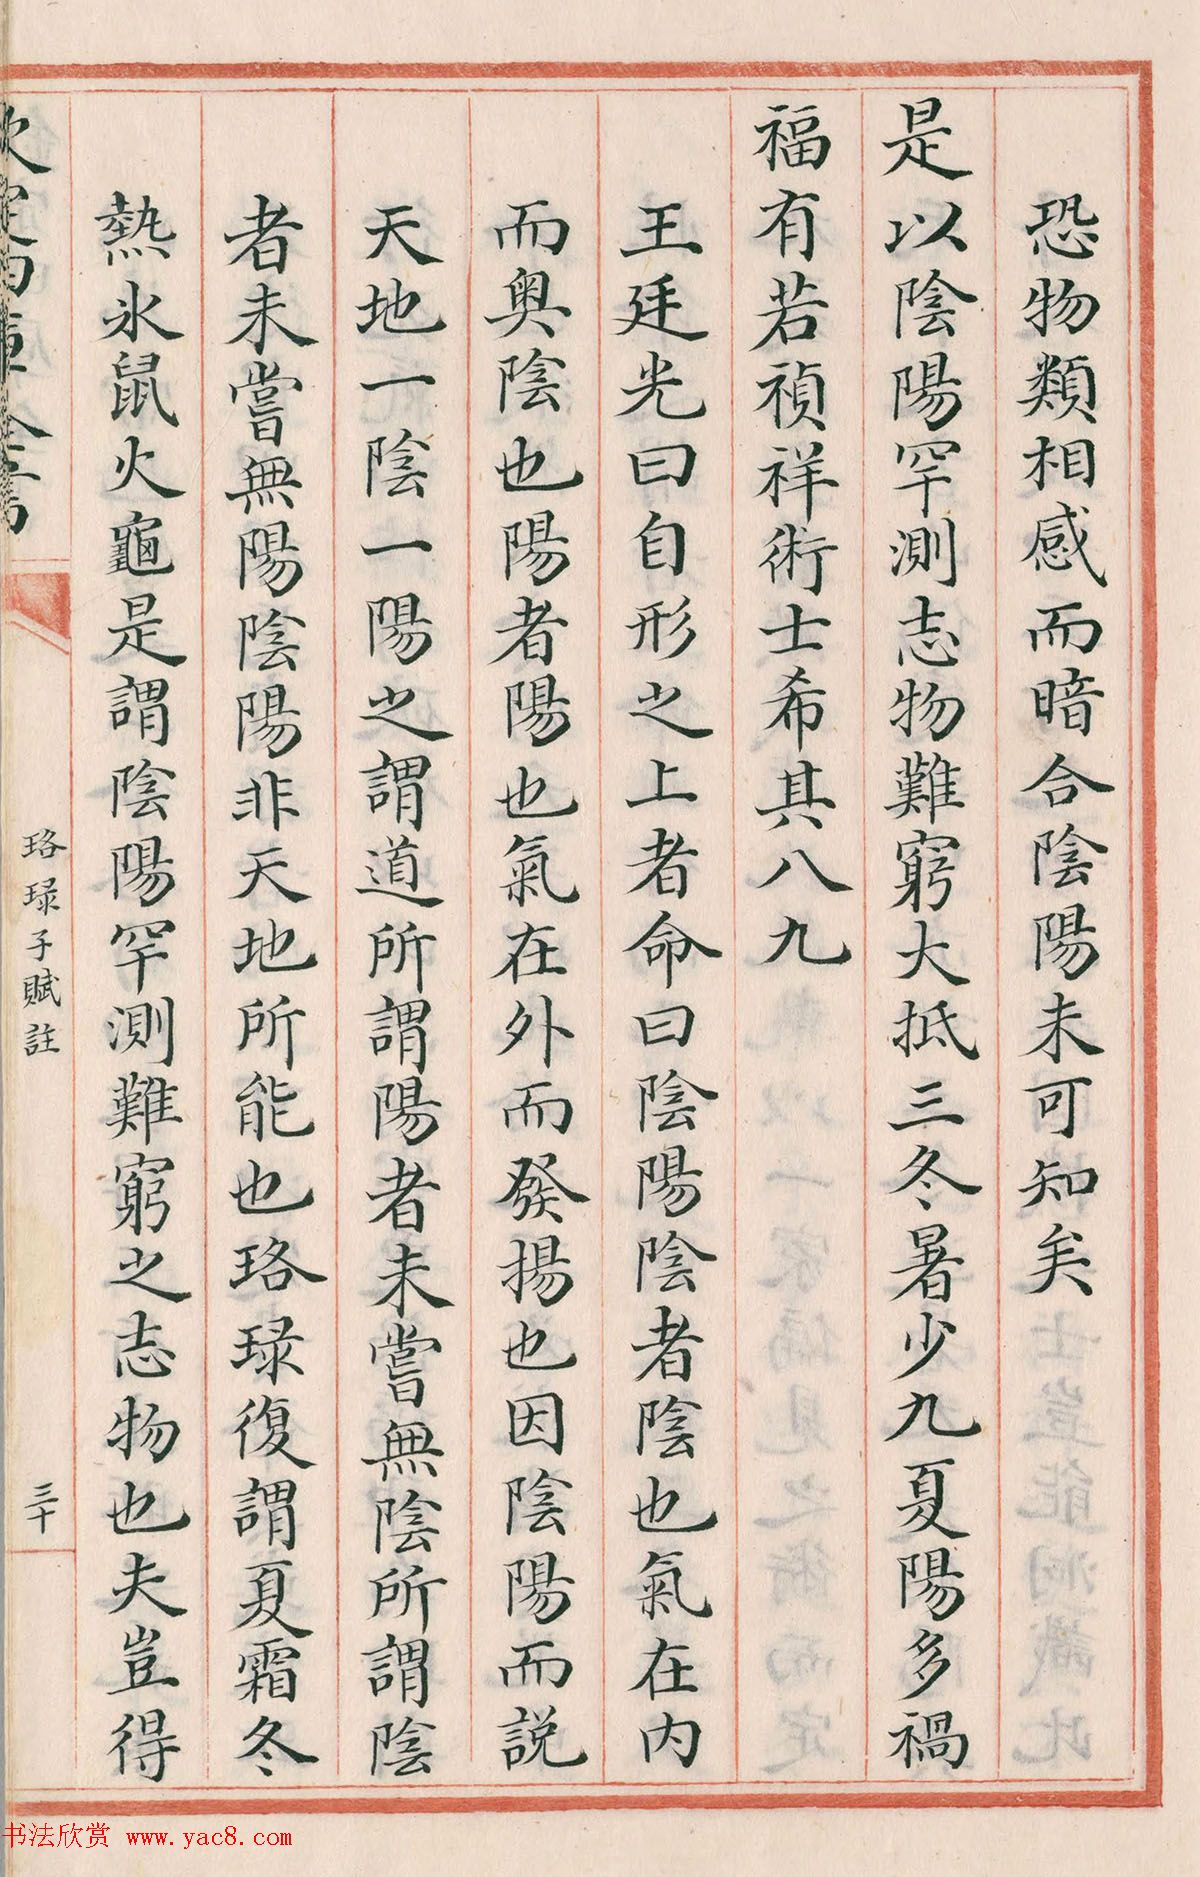 恐物類相感而暗合陰陽未可知矣
是以陰陽罕測志物難窮大抵三冬暑少九夏陽多禍
福有若禎祥術士希其八九
王廷光曰自形之上者命曰陰陽陰者陰也氣在内
而奥陰也陽者陽也氣在外而發揚也因陰陽而説
天地一陰一陽之謂道所謂陽者未嘗無陰所謂陰
者未嘗無陽陰陽非天地所能也珞琭復謂夏霜冬
熱氷鼠火龜是謂陰陽罕測難窮之志物也夫豈得
欽定四庫全書
珞琭子賦註
三十
书法欣赏 www.yac8.com